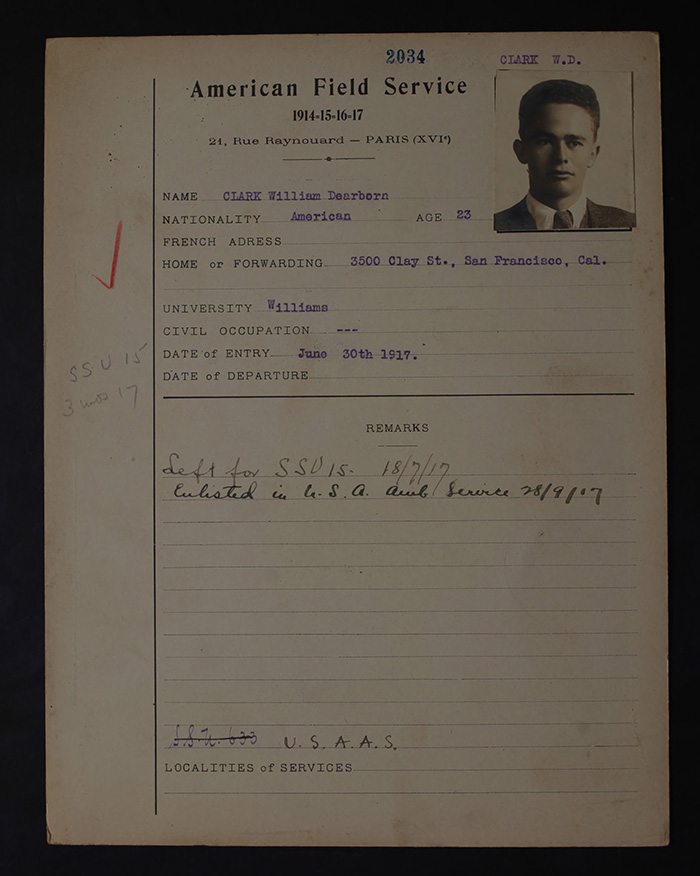 2034
CLARK W.D.
American Field Service
1914-15-16-17
21, Rue Raynouard — PARIS (XVIe)
NAME CLARK William Dearborn
NATIONALITY American AGE 23
FRENCH ADRESS
HOME or FORWARDING 3500 Clay St., San Francisco, Cal.
UNIVERSITY Williams
CIVIL OCCUPATION ---
DATE of ENTRY June 30th 1917.
DATE of DEPARTURE
SSU 15
3 mos 17
REMARKS
Left for SSU 15- 18/7/17
Enlisted in U.S.A. Amb Service 28/9/17
S.S.U. 633 U.S.A.A.S.
LOCALITIES of SERVICES